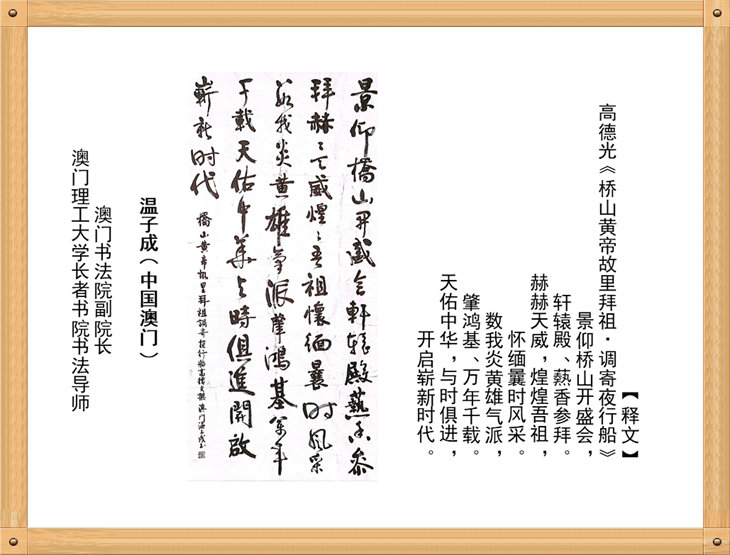 【释文】
高德光《桥山黄帝故里拜祖·调寄夜行船》
景仰桥山开盛会，
轩辕殿、爇香参拜。
赫赫天威，煌煌吾祖，
怀缅曩时风采。
数我炎黄雄气派，
肇鸿基、万年千载。
天佑中华，与时俱进，
开启崭新时代。
景仰橋山開盛会軒轅殿爇香参
拜赫〻天威煌〻吾祖懷緬曩时風采
数我炎黄雄氣派肇鴻基萬年
千載天佑中華与時俱進開啟
嶄新时代
橋山黄帝故里拜祖調寄夜行船高德光撰 澳门温子成书
温子成（中国澳门）
澳门书法院副院长
澳门理工大学长者书院书法导师